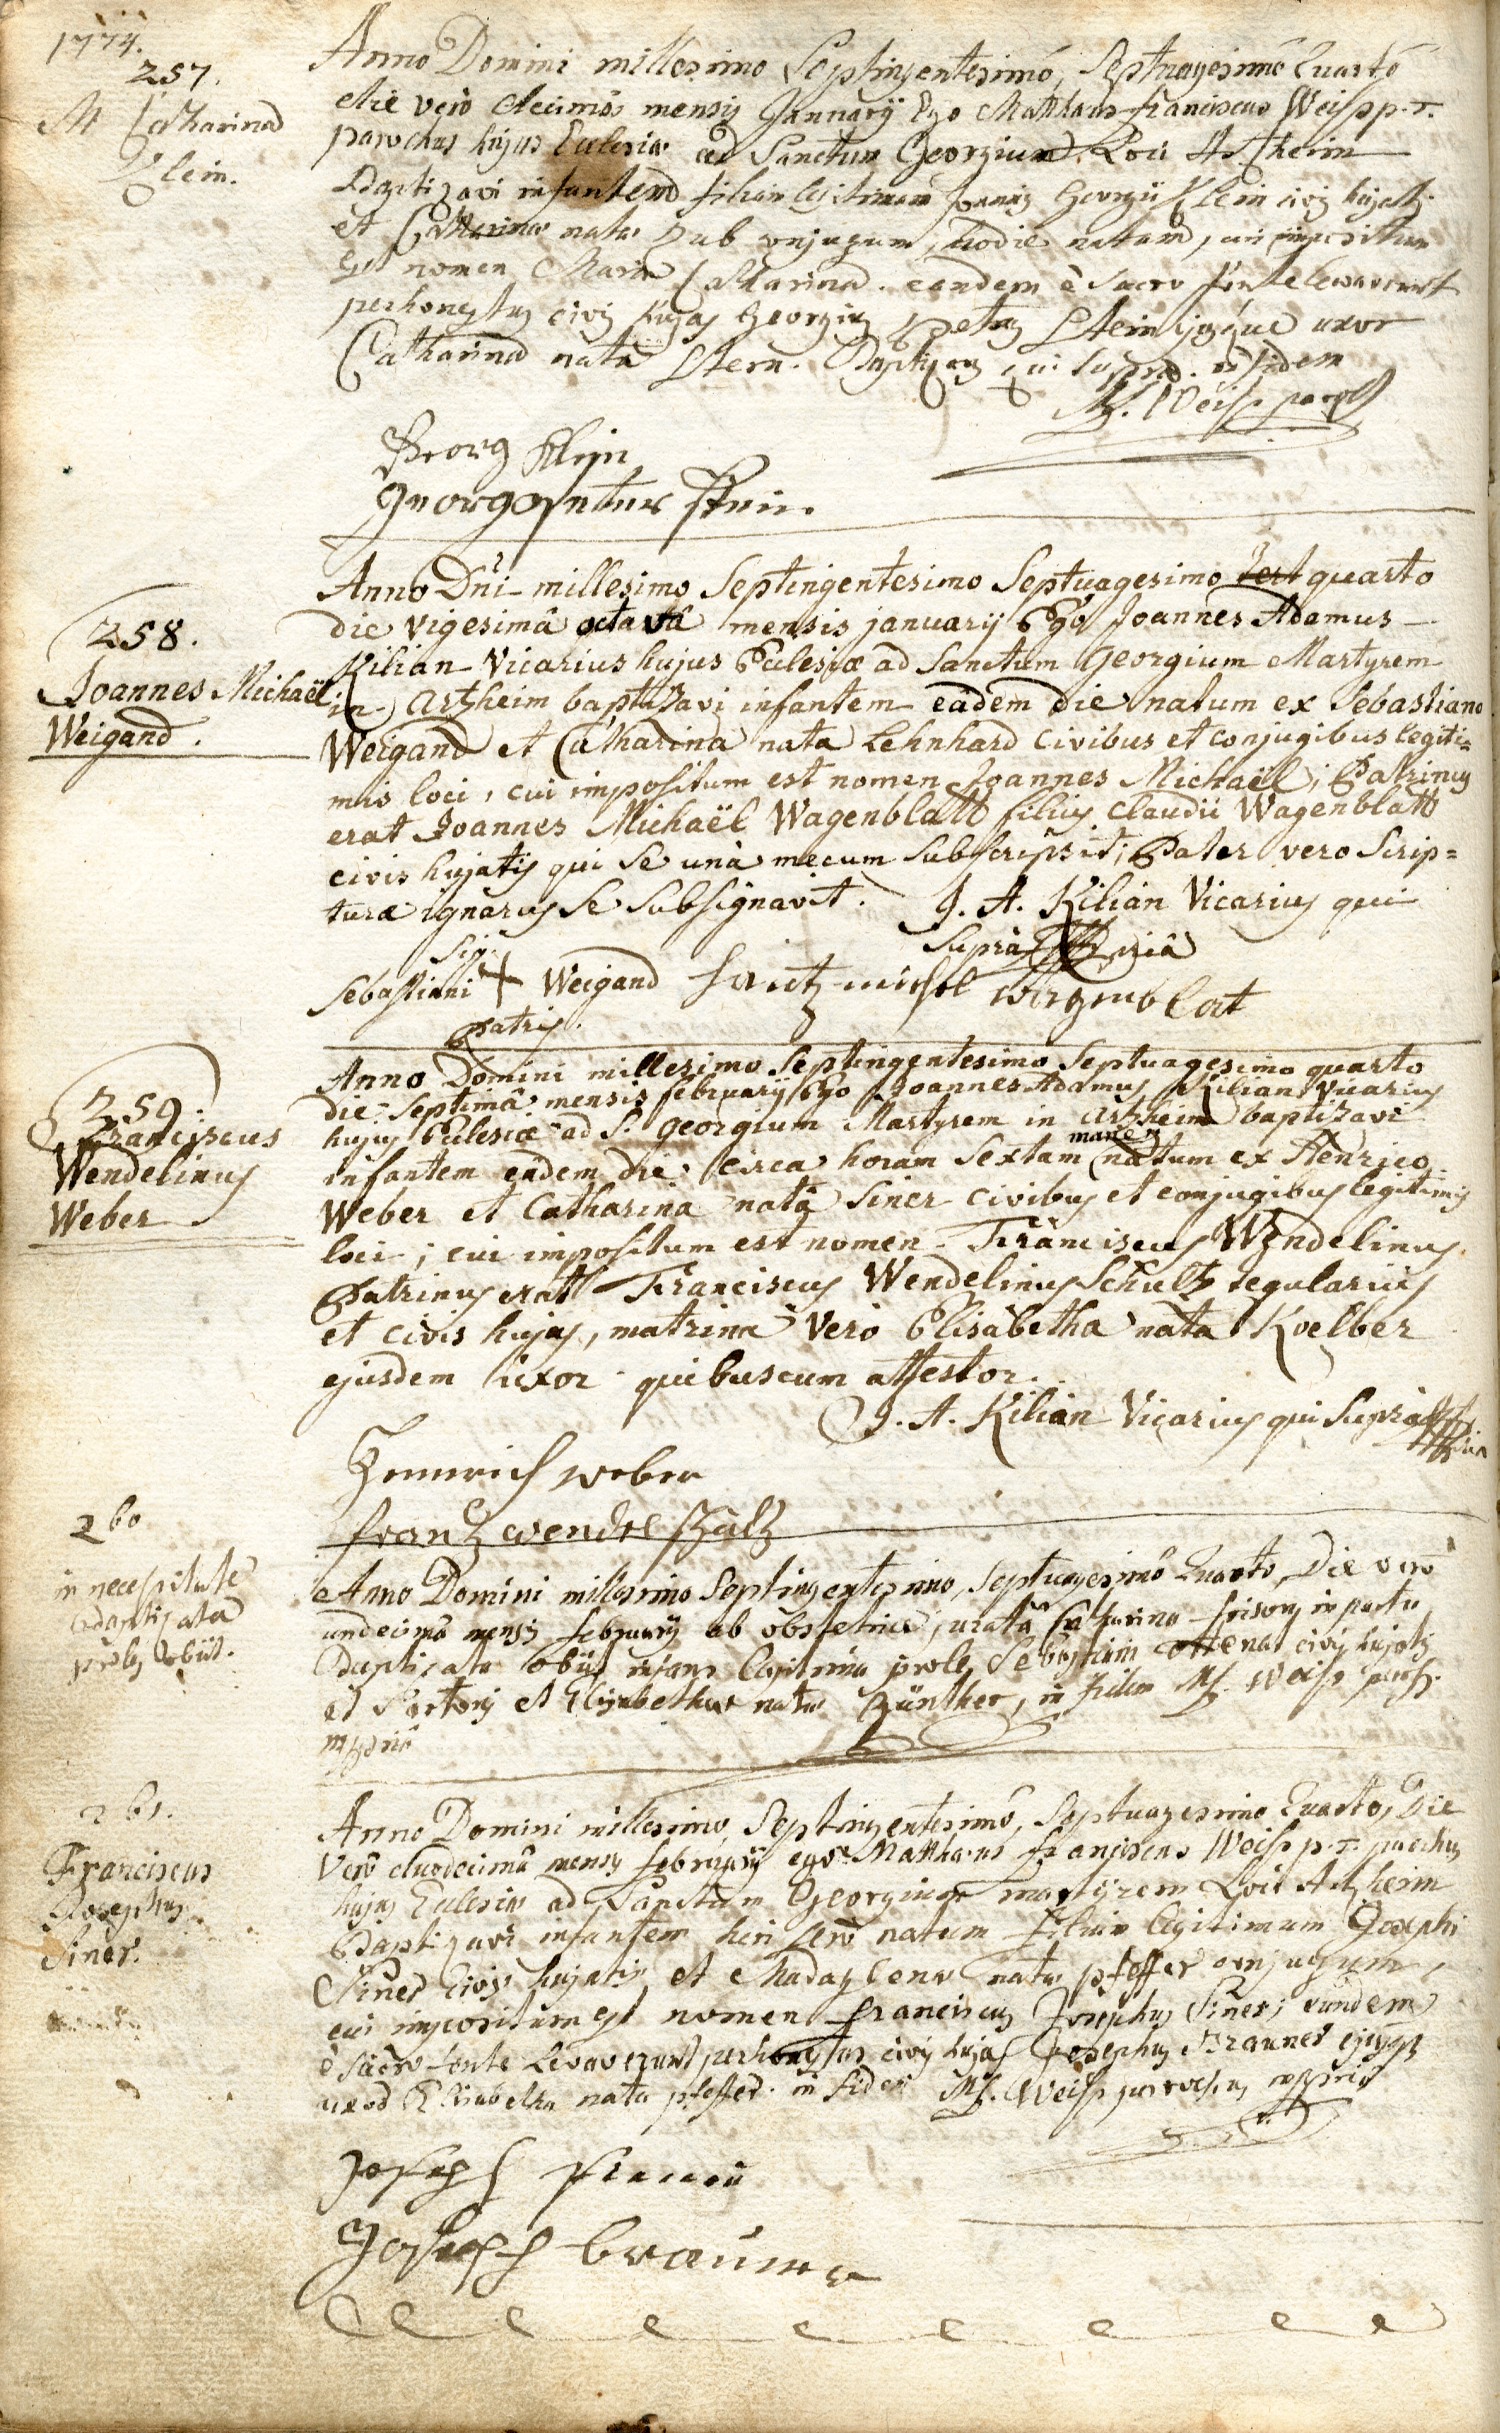 1774.
257.
M Catharina
Klein.
Anno Domini millesimo Septingentesimo, Septuagesimo Quarto
die vero decima mensis Januarÿ Ego Matthaus Franciscus Weiss p. t.
parochus hujus Eclesiæ ad Sanctum Georgium Loci Artzheim
Baptizavi infantem filiam legitimam Joannis Georgii Klein civis hujatis
et Catharinæ natæ Dub conjugum, hodie natam, cui impositum
Est nomen Maria Catharina. eandem è Sacro fonte levaverunt
perhonestus civis hujas Georgius Petrus Stein ejusque uxor
Catharina nata Stern. Baptizans qui supra. in fidem
M. F. Weiss paroch
Georg Klein
Georg Peter Stein.
258.
Joannes Michaël
Weigand.
Anno Dni millesimo Septingentesimo Septuagesimo Tert quarto
die vigesimâ octavâ mensis januarÿ Ego Joannes Adamus
Kilian Vicarius hujus Eclesiæ ad Sanctum Georgium Martyrem
in Artzheim baptizavi infantem eâdem die natum ex Sebastiano
Weigand et Catharina nata Lehnhard civibus et conjugibus legiti=
mis loci, cui impositum est nomen Joannes Michaël; Patrinus
erat Joannes Michaël Wagenblatt filius Claudii Wagenblatt
civis hujatis qui se unà mecum subscripsit; Pater vero scrip=
turæ ignarus se subsignavit. J. A. Kilian Vicarius qui
Suprà mppriâ
Sig.
Sebastiani + Weigand michel wagenblat
Patris.
259.
Franciscus
Wendelinus
Weber
Anno Domini millesimo Septingentesimo Septuagesimo quarto
die Septimâ mensis februarÿ Ego Joannes Adamus Kilian Vicarius
hujus Eclesiæ ad S. Georgium Martyrem in Artzheim baptizavi
mane
infantem eâdem die circa horam Sextam natum ex Henrico
Weber et Catharina nata Siner civibus et conjugibus legitimis
loci; cui impositum est nomen Franciscus Wendelinus.
Patrinus erat Franciscus Wendelinus Schultz tegularius
et civis hujas, matrina vero Elisabetha nata Koelber
ejusdem uxor quibuscum attestor.
J. A. Kilian Vicarius qui Suprà mppria
Heinrich weber
frantz wendel schultz
260
in necessitate
Baptizata
proles obiit.
Anno Domini millesimo Septingentesimo, Septuagesimo Quarto, Die vero
undecima mensis februarÿ ab obstetrice jurata Catharina in partu
Baptizata obiit infans legitima proles Sebastiani civis hujatis
et Sartoris et Elisabethæ natæ Günther, in fidem M. F. Weiss paroch.
mppriâ
261.
Franciscus
Josephus
Siner.
Anno Domini millesimo, Septingentesimo, Septuagesimo Quarto, Die
Vero duodecima mensis februarÿ ego Matthaus franciscus Weiss p. t. parochus
hujus Eclesiæ ad Sanctum Georgium martyrem Loci Artzheim
Baptizavi infantem heri sero natum filium legitimum Josephi
Siner civis hujatis, et Madaglenæ natæ pfeffer conjugum,
cui impositum est nomen franciscus Josephus Siner; eundem
è Sacro fonte Levaverunt perhonestus civis hujas Josephus Brauner ejusque
uxor Elisabetha nata pfeffer. in fidem M. F. Weiss parochus mppria
Joseph
Joseph brauner